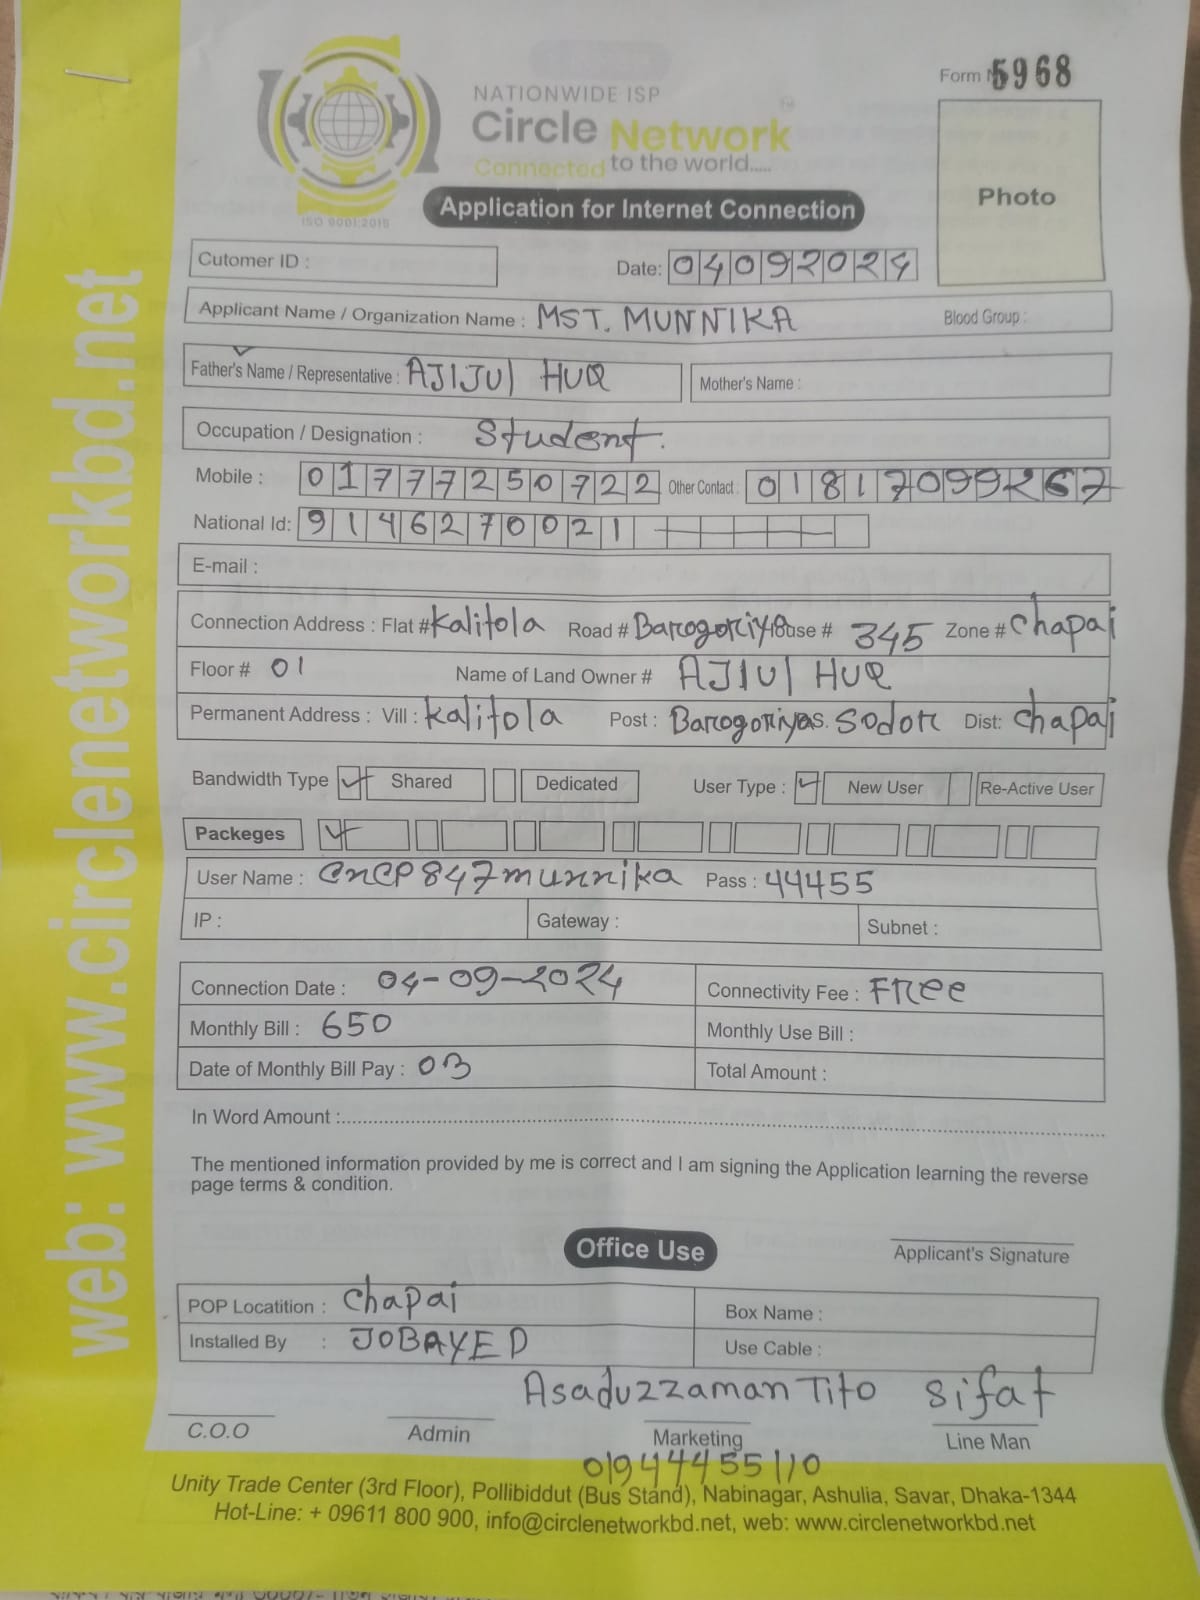 Form N 5968
NATIONWIDE ISP
Circle Network
Connected to the world.....
ISO 9001:2015
Application for Internet Connection
Photo
Cutomer ID :
Date: 04092024
Applicant Name / Organization Name : MST. MUNNIKA Blood Group :
Father's Name / Representative : AJIJUl HUQ Mother's Name :
Occupation / Designation : Student.
Mobile : 01777250722 Other Contact : 01817099267
National Id: 9146270021
E-mail :
Connection Address : Flat # Kalitola Road # Barogoriya House # 345 Zone # Chapai
Floor # 01 Name of Land Owner # AJIUl HUQ
Permanent Address : Vill : Kalitola Post : Barogoriya P.S. Sodor Dist: Chapai
Bandwidth Type ✓ Shared Dedicated User Type : ✓ New User Re-Active User
Packeges ✓
User Name : CNCP847munnika Pass : 44455
IP : Gateway : Subnet :
Connection Date : 04-09-2024 Connectivity Fee : Free
Monthly Bill : 650 Monthly Use Bill :
Date of Monthly Bill Pay : 03 Total Amount :
In Word Amount :
The mentioned information provided by me is correct and I am signing the Application learning the reverse
page terms & condition.
Office Use
Applicant's Signature
POP Locatition : Chapai Box Name :
Installed By : JOBAYED Use Cable :
Asaduzzaman Tito Sifat
C.O.O Admin Marketing Line Man
01944455110
Unity Trade Center (3rd Floor), Pollibiddut (Bus Stand), Nabinagar, Ashulia, Savar, Dhaka-1344
Hot-Line: + 09611 800 900, info@circlenetworkbd.net, web: www.circlenetworkbd.net
web: www.circlenetworkbd.net